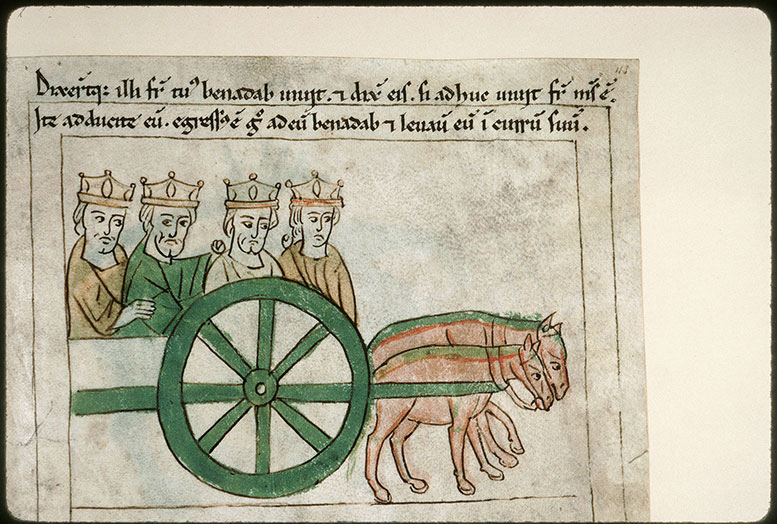 Dixert̄q; illi fr̄ tuꝰ benadab uiuit. ⁊ dix̄ eis. si adhuc uiuit fr̄ m̄s ē.
Ite adducite eū. egressꝰ ē g̊ ad eū benadab ⁊ leuauı̄t eū ī currū suū.